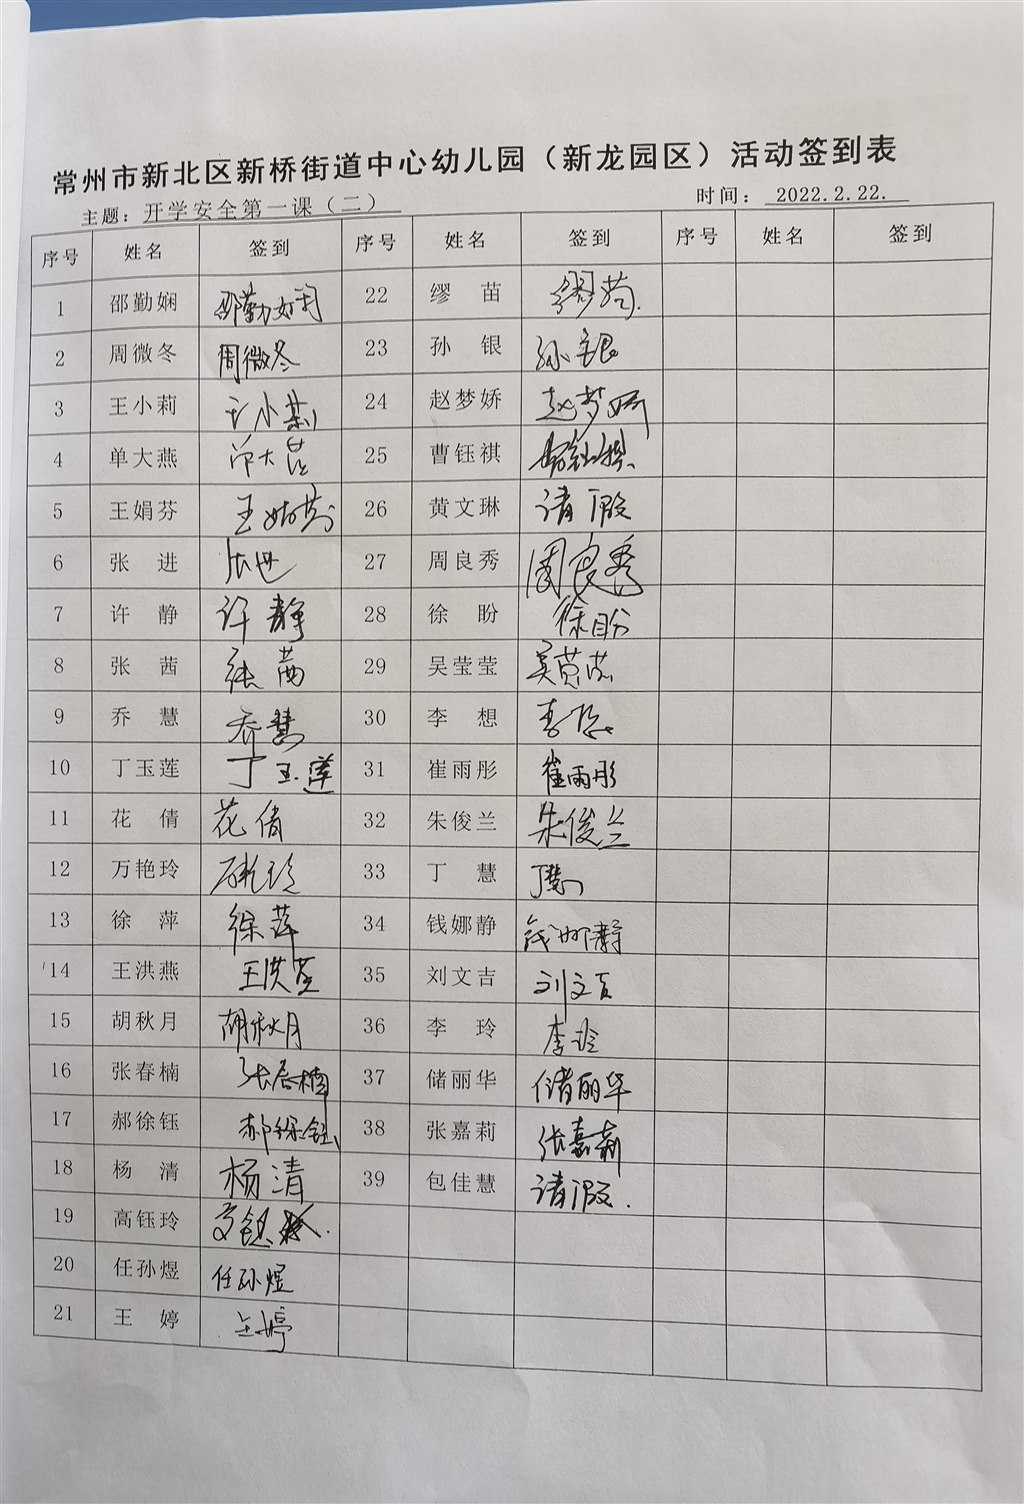 常州市新北区新桥街道中心幼儿园（新龙园区）活动签到表
主题：开学安全第一课（二） 时间：2022.2.22.
序号 姓名 签到 序号 姓名 签到 序号 姓名 签到
1 邵勤娴 邵勤娴 22 缪苗 缪苗.
2 周微冬 周微冬 23 孙银 孙银
3 王小莉 王小莉 24 赵梦娇 赵梦娇
4 单大燕 单大燕 25 曹钰祺 曹钰祺
5 王娟芬 王娟芬 26 黄文琳 请假
6 张进 张进 27 周良秀 周良秀
7 许静 许静 28 徐盼 徐盼
8 张茜 张茜 29 吴莹莹 吴莹莹
9 乔慧 乔慧 30 李想 李想
10 丁玉莲 丁玉莲 31 崔雨彤 崔雨彤
11 花倩 花倩 32 朱俊兰 朱俊兰
12 万艳玲 万艳玲 33 丁慧 丁慧
13 徐萍 徐萍 34 钱娜静 钱娜静
14 王洪燕 王洪燕 35 刘文吉 刘文吉
15 胡秋月 胡秋月 36 李玲 李玲
16 张春楠 张春楠 37 储丽华 储丽华
17 郝徐钰 郝徐钰 38 张嘉莉 张嘉莉
18 杨清 杨清 39 包佳慧 请假.
19 高钰玲 高钰
20 任孙煜 任孙煜
21 王婷 王婷